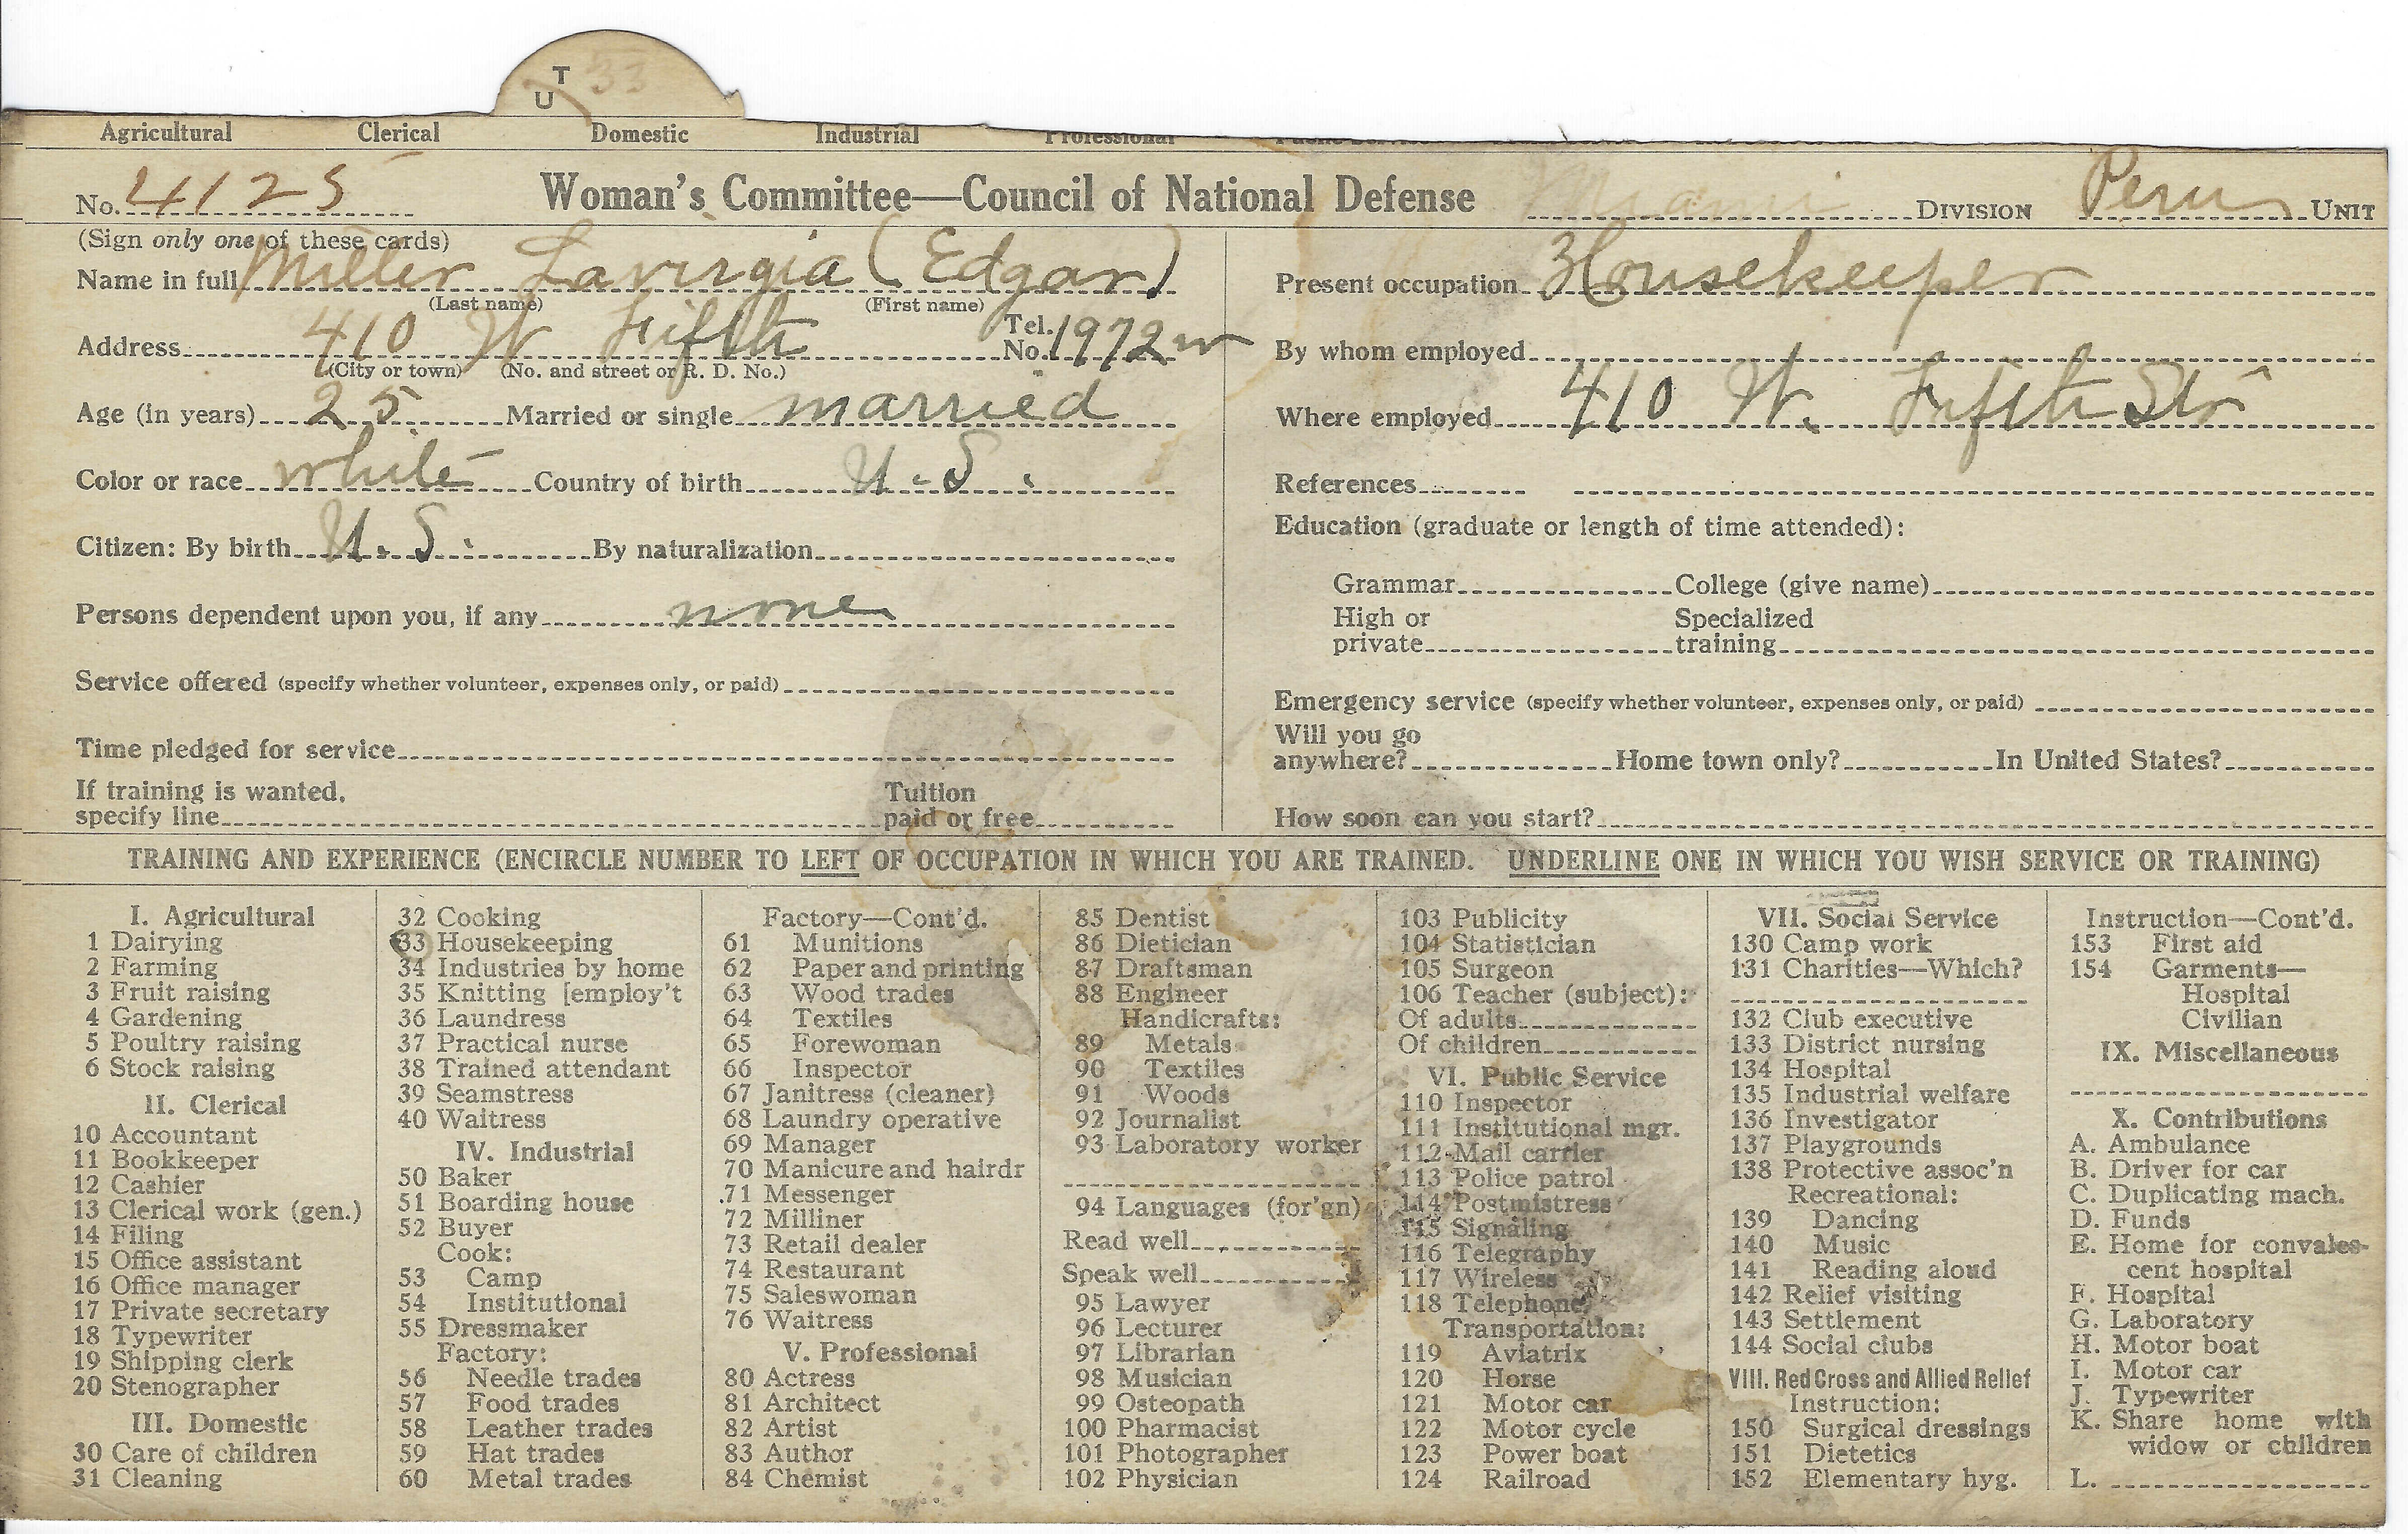 T 33
U
Agricultural Clerical Domestic Industrial Professional
No. 4125 Woman's Committee—Council of National Defense Miami DIVISION Peru UNIT
(Sign only one of these cards)
Name in full Miller Lavirgia (Edgar)
(Last name) (First name)
Address 410 W Fifth Tel. No. 1972 w
(City or town) (No. and street or R. D. No.)
Age (in years) 25 Married or single married
Color or race white Country of birth U.S.
Citizen: By birth U.S. By naturalization
Persons dependent upon you, if any none
Service offered (specify whether volunteer, expenses only, or paid)
Time pledged for service
If training is wanted, specify line Tuition paid or free
Present occupation Housekeeper
By whom employed
Where employed 410 W. Fifth Str
References
Education (graduate or length of time attended):
Grammar College (give name)
High or private Specialized training
Emergency service (specify whether volunteer, expenses only, or paid)
Will you go anywhere? Home town only? In United States?
How soon can you start?
TRAINING AND EXPERIENCE (ENCIRCLE NUMBER TO LEFT OF OCCUPATION IN WHICH YOU ARE TRAINED. UNDERLINE ONE IN WHICH YOU WISH SERVICE OR TRAINING)
I. Agricultural
1 Dairying
2 Farming
3 Fruit raising
4 Gardening
5 Poultry raising
6 Stock raising
II. Clerical
10 Accountant
11 Bookkeeper
12 Cashier
13 Clerical work (gen.)
14 Filing
15 Office assistant
16 Office manager
17 Private secretary
18 Typewriter
19 Shipping clerk
20 Stenographer
III. Domestic
30 Care of children
31 Cleaning
32 Cooking
33 Housekeeping
34 Industries by home
35 Knitting [employ't
36 Laundress
37 Practical nurse
38 Trained attendant
39 Seamstress
40 Waitress
IV. Industrial
50 Baker
51 Boarding house
52 Buyer
Cook:
53 Camp
54 Institutional
55 Dressmaker
Factory:
56 Needle trades
57 Food trades
58 Leather trades
59 Hat trades
60 Metal trades
Factory—Cont'd.
61 Munitions
62 Paper and printing
63 Wood trades
64 Textiles
65 Forewoman
66 Inspector
67 Janitress (cleaner)
68 Laundry operative
69 Manager
70 Manicure and hairdr
71 Messenger
72 Milliner
73 Retail dealer
74 Restaurant
75 Saleswoman
76 Waitress
V. Professional
80 Actress
81 Architect
82 Artist
83 Author
84 Chemist
85 Dentist
86 Dietician
87 Draftsman
88 Engineer
Handicrafts:
89 Metals
90 Textiles
91 Woods
92 Journalist
93 Laboratory worker
94 Languages (for'gn)
Read well
Speak well
95 Lawyer
96 Lecturer
97 Librarian
98 Musician
99 Osteopath
100 Pharmacist
101 Photographer
102 Physician
103 Publicity
104 Statistician
105 Surgeon
106 Teacher (subject):
Of adults
Of children
VI. Public Service
110 Inspector
111 Institutional mgr.
112 Mail carrier
113 Police patrol
114 Postmistress
115 Signaling
116 Telegraphy
117 Wireless
118 Telephone
Transportation:
119 Aviatrix
120 Horse
121 Motor car
122 Motor cycle
123 Power boat
124 Railroad
VII. Social Service
130 Camp work
131 Charities—Which?
132 Club executive
133 District nursing
134 Hospital
135 Industrial welfare
136 Investigator
137 Playgrounds
138 Protective assoc'n
Recreational:
139 Dancing
140 Music
141 Reading aloud
142 Relief visiting
143 Settlement
144 Social clubs
VIII. Red Cross and Allied Relief
Instruction:
150 Surgical dressings
151 Dietetics
152 Elementary hyg.
Instruction—Cont'd.
153 First aid
154 Garments—
Hospital
Civilian
IX. Miscellaneous
X. Contributions
A. Ambulance
B. Driver for car
C. Duplicating mach.
D. Funds
E. Home for convales-
cent hospital
F. Hospital
G. Laboratory
H. Motor boat
I. Motor car
J. Typewriter
K. Share home with
widow or children
L.